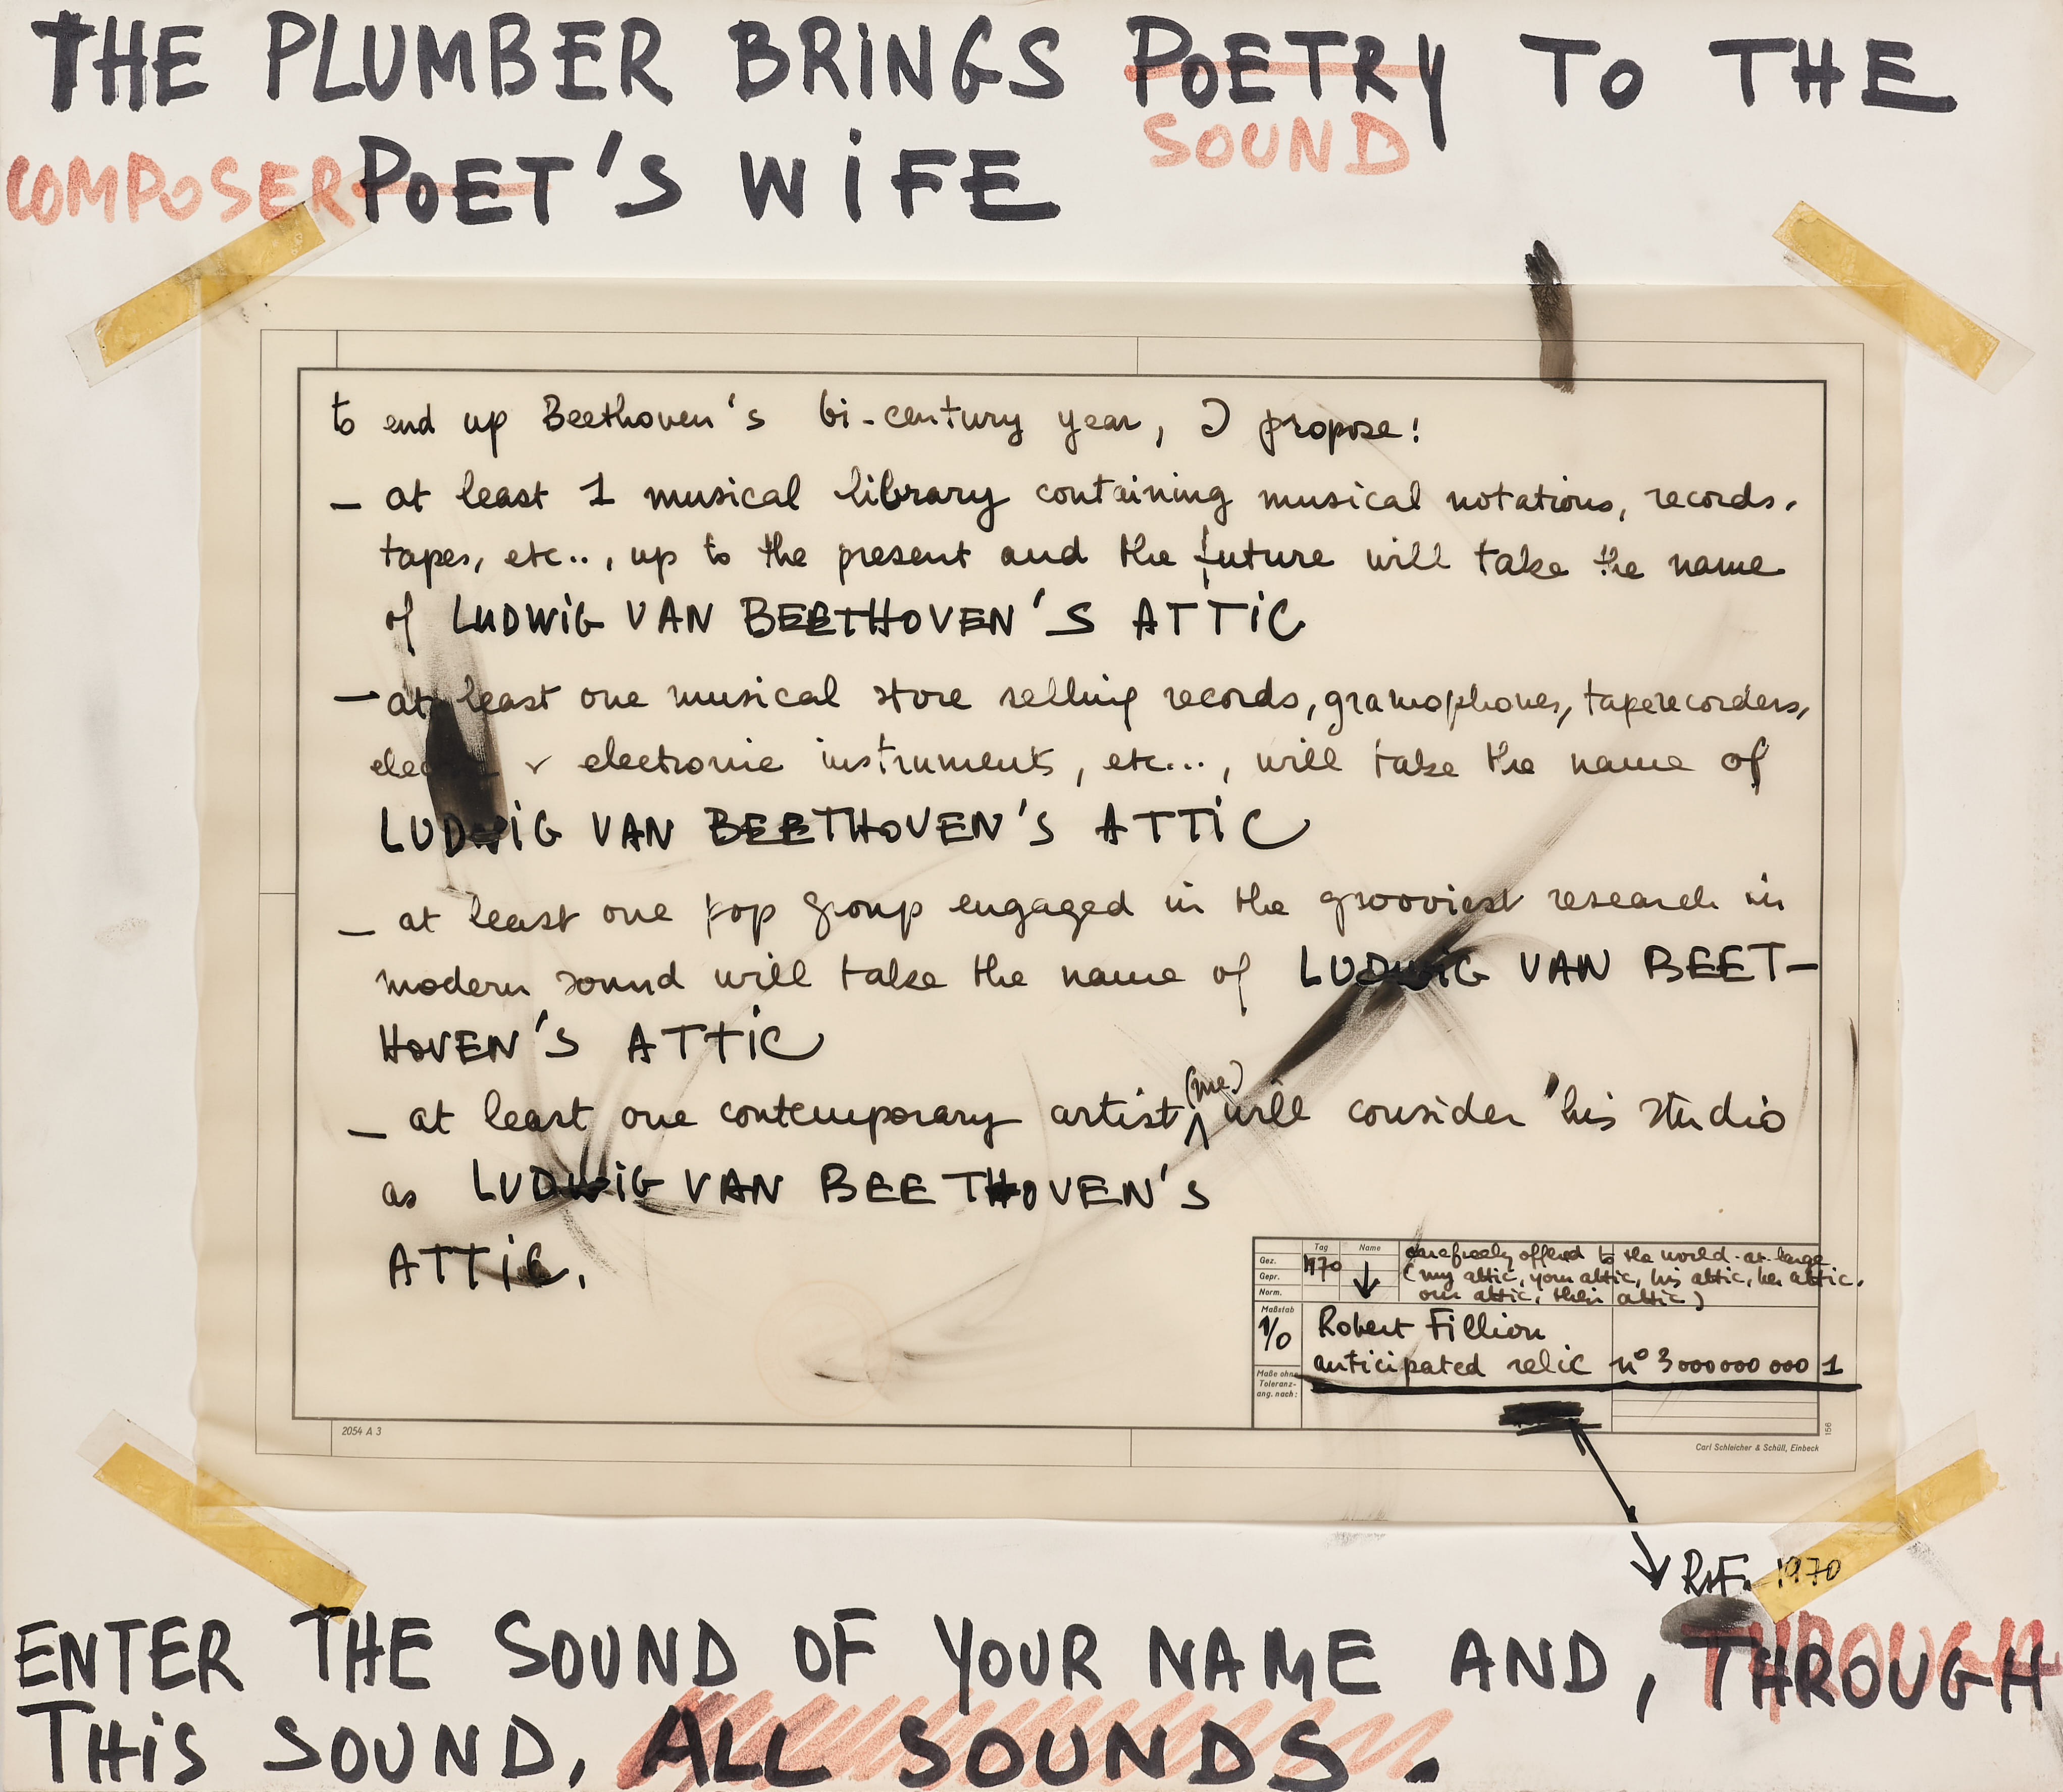 THE PLUMBER BRINGS POETRY TO THE
SOUND
COMPOSER POET'S WIFE
to end up Beethoven's bi-century year, I propose!
– at least 1 musical library containing musical notations, records,
tapes, etc.., up to the present and the future will take the name
of LUDWIG VAN BEETHOVEN'S ATTIC
– at least one musical store selling records, gramophones, taperecorders,
electronic instruments, etc..., will take the name of
LUDWIG VAN BEETHOVEN'S ATTIC
– at least one pop group engaged in the grooviest research in
modern sound will take the name of LUDWIG VAN BEET–
HOVEN'S ATTIC
– at least one contemporary artist (me) will consider his studio
as LUDWIG VAN BEETHOVEN'S
ATTIC.
Tag Name
Gez.
Gepr.
Norm.
1970
carefreely offered to the world-at-large
(my attic, your attic, his attic, her attic,
our attic, their attic)
Maßstab
1/0
Robert Filliou
anticipated relic n° 3000000 000 1
Maße ohne
Toleranz-
ang. nach:
2054 A 3
156
Carl Schleicher & Schüll, Einbeck
R.F. 1970
ENTER THE SOUND OF YOUR NAME AND, THROUGH
THIS SOUND, ALL SOUNDS.